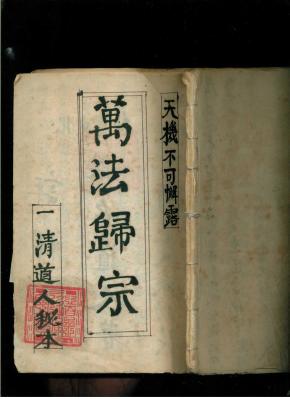 天機不可懈露
萬法歸宗
一清道人秘本